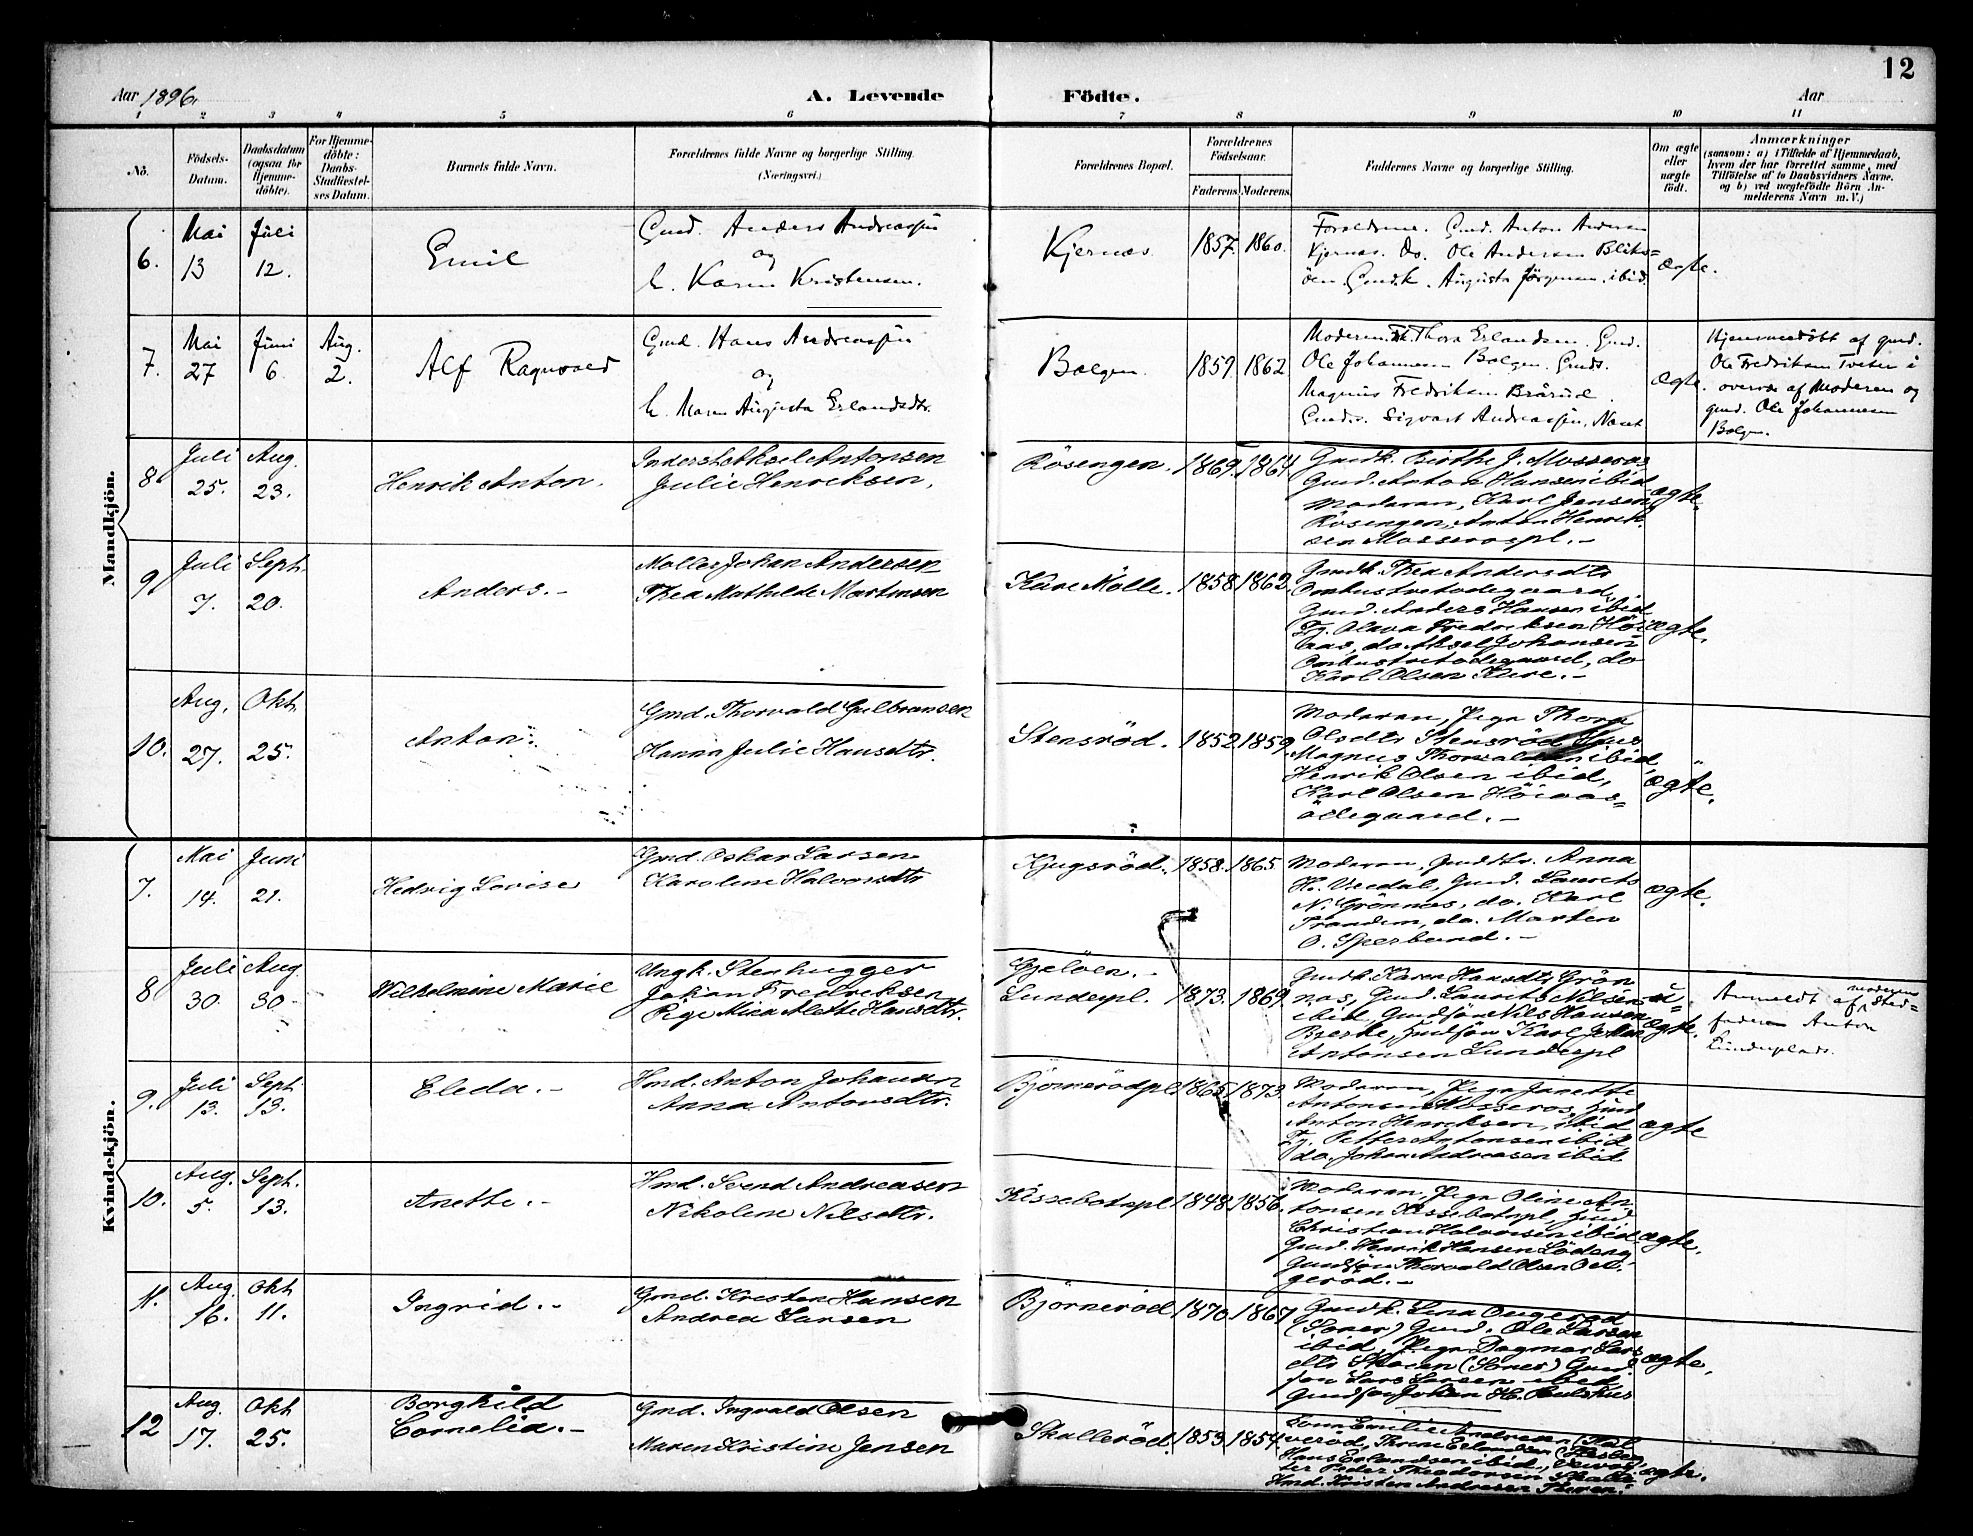 12
Aar 1896. A. Levende Födte. Aar
1 2 3 4 5 6 7 8 9 10 11
No.
Födsels-Datum.
Daabsdatum (ogsaa for Hjemme-döbte).
For Hjemme-döbte: Daabs-Stadfæstel-ses Datum.
Barnets fulde Navn.
Forældrenes fulde Navne og borgerlige Stilling.
(Næringsvei.)
Forældrenes Bopæl.
Forældrenes Födselsaar.
Faderens. Moderens.
Faddernes Navne og borgerlige Stilling.
Om ægte eller uægte födt.
Anmærkninger
(saasom: a) i Tilfælde af Hjemmedaab,
hvem der har forrettet samme, med
Tilföielse af to Daabsvidners Navne,
og b) ved uægtefödte Börn An-
melderens Navn m. V.)
Mandkjön.
6. Mai 13 Juli 12. Emil
Gmd. Anders Andreassen
og
h. Karen Kristensen.
Kjernæs 1857. 1860.
Forældrene. Gmd. Anton Andersen
Kjernæs. Do. Ole Andersen
Gmdk. Augusta Jörgensen ibid.
ægte.
7. Mai 27 Juni 6 Aug. 2. Alf Ragnvald
Gmd. Hans Andreassen
og
h. Maren Augusta Erlandsdtr.
Bolgen 1859. 1862
Moderen, Thora Erlandsen. Gmd.
Ole Johannesen Bolgen. Gmds.
Magnus Fredriksen Brårud.
Gmds. Sigvart Andreassen, Næset
ægte.
Hjemmedöbt af gmd.
Ole Fredriksen Tveter i
overvær af Moderen og
gmd. Ole Johannesen
Bolgen.
8 Juli 25. Aug. 23. Henrik Anton.
Inderst Aksel Antonsen
Julie Henriksen.
Rösengen. 1869. 1864
Gmdk. Birthe J. Mosseros
Gmd. Anton Hansen ibid
Moderen, Karl Jensen
Rösengen, Anton Henrik-
sen Mosserospl. -
ægte.
9. Juli 7. Sept. 20. Anders. -
Möller Johan Andersen
Thea Mathilde Martinsen
Kure Mölle. 1858. 1862.
Gmdk. Thea Andersdtr
Ombustvetödegaard,
Gmd. Anders Hansen ibid
Fg. Olava Fredriksen Höi-
aas, do Aksel Johansen
Ombustvetödegaard, do
Karl Olsen Kure. -
ægte.
10. Aug. 27. Okt. 25. Anton. -
Gmd. Thorvald Gulbransen
Hanna Julie Hansdtr.
Stensröd. 1852. 1859.
Moderen, Pige Thora
Olsdtr Stensröd,
Magnus Thorvaldsen ibid,
Henrik Olsen ibid,
Karl Olsen Höivas=
ödegaard. -
ægte.
Kvindekjön.
7. Mai 14. Juni 21. Hedvig Lovise
Gmd. Oskar Larsen
Karoline Halvorsdtr
Kjugsröd. 1858. 1865.
Moderen, Anna
H. Veedal, Gmd. Laurits
N. Grönnæs, do. Karl
Trandem, do. Martin
O. Sperbund. -
ægte.
8 Juli 30. Aug 30. Wilhelmine Marie
Ungk. Stenhugger
Johan Fredriksen
Pige Mina Alette Hansdtr.
Gjelöen. -
Lundepl. 1873. 1869.
Gmdk. Karen Hansdtr Grön
næs, Gmd. Laurits Nilsen
ibid, Gmdsön Nils Hansen
Bjerke, Hmdsön Karl Johan
Antonsen Lundepl
u-
ægte.
Anmeldt af moderens Sted-
fader Anton
Lundeplads.
9. Juli 13. Sept. 13. Eleda. -
Hmd. Anton Johansen
Anna Antonsdtr.
Björneródpl 1865. 1873.
Moderen, Pige Janette
Antonsen Mosseros, Hmd
Anton Henriksen, ibid
Fg. Petter Antonsen ibid
do. Johan Andreasen ibid
ægte
10. Aug. 5. Sept. 13. Anette. -
Hmd. Svend Andreasen
Nikoline Nilsdtr.
Kissebotnpl 1848. 1856.
Moderen, Pige Oline An-
tonsen Kissebotnpl, Hmd
Christian Halvorsen ibid
Gmd. Henrik Hansen
Gmdsön Thorvald Olsen
geröd. -
ægte.
11. Aug. 16. Okt 11. Ingrid. -
Gmd. Kristen Hansen
Andrea Larsen
Björneröd 1870. 1867
Gmdk. Lina Ougeröd
(Soner) Gmd. Ole Larsen
ibid, Pige Dagmar Lars
dtr Skoien (Soner) Gmd
sön Lars Larsen ibid
Gmdsön Johan H.
ægte.
12 Aug. 17. Okt 25. Borghild
Cornelia. -
Gmd. Ingvald Olsen
Maren Kristine Jensen
Skalleröd. 1853. 1854.
Emilie Andresen
Hans Erlandsen ibid,
Peder Theodorsen
Hmd. Kristen Andresen
ægte.